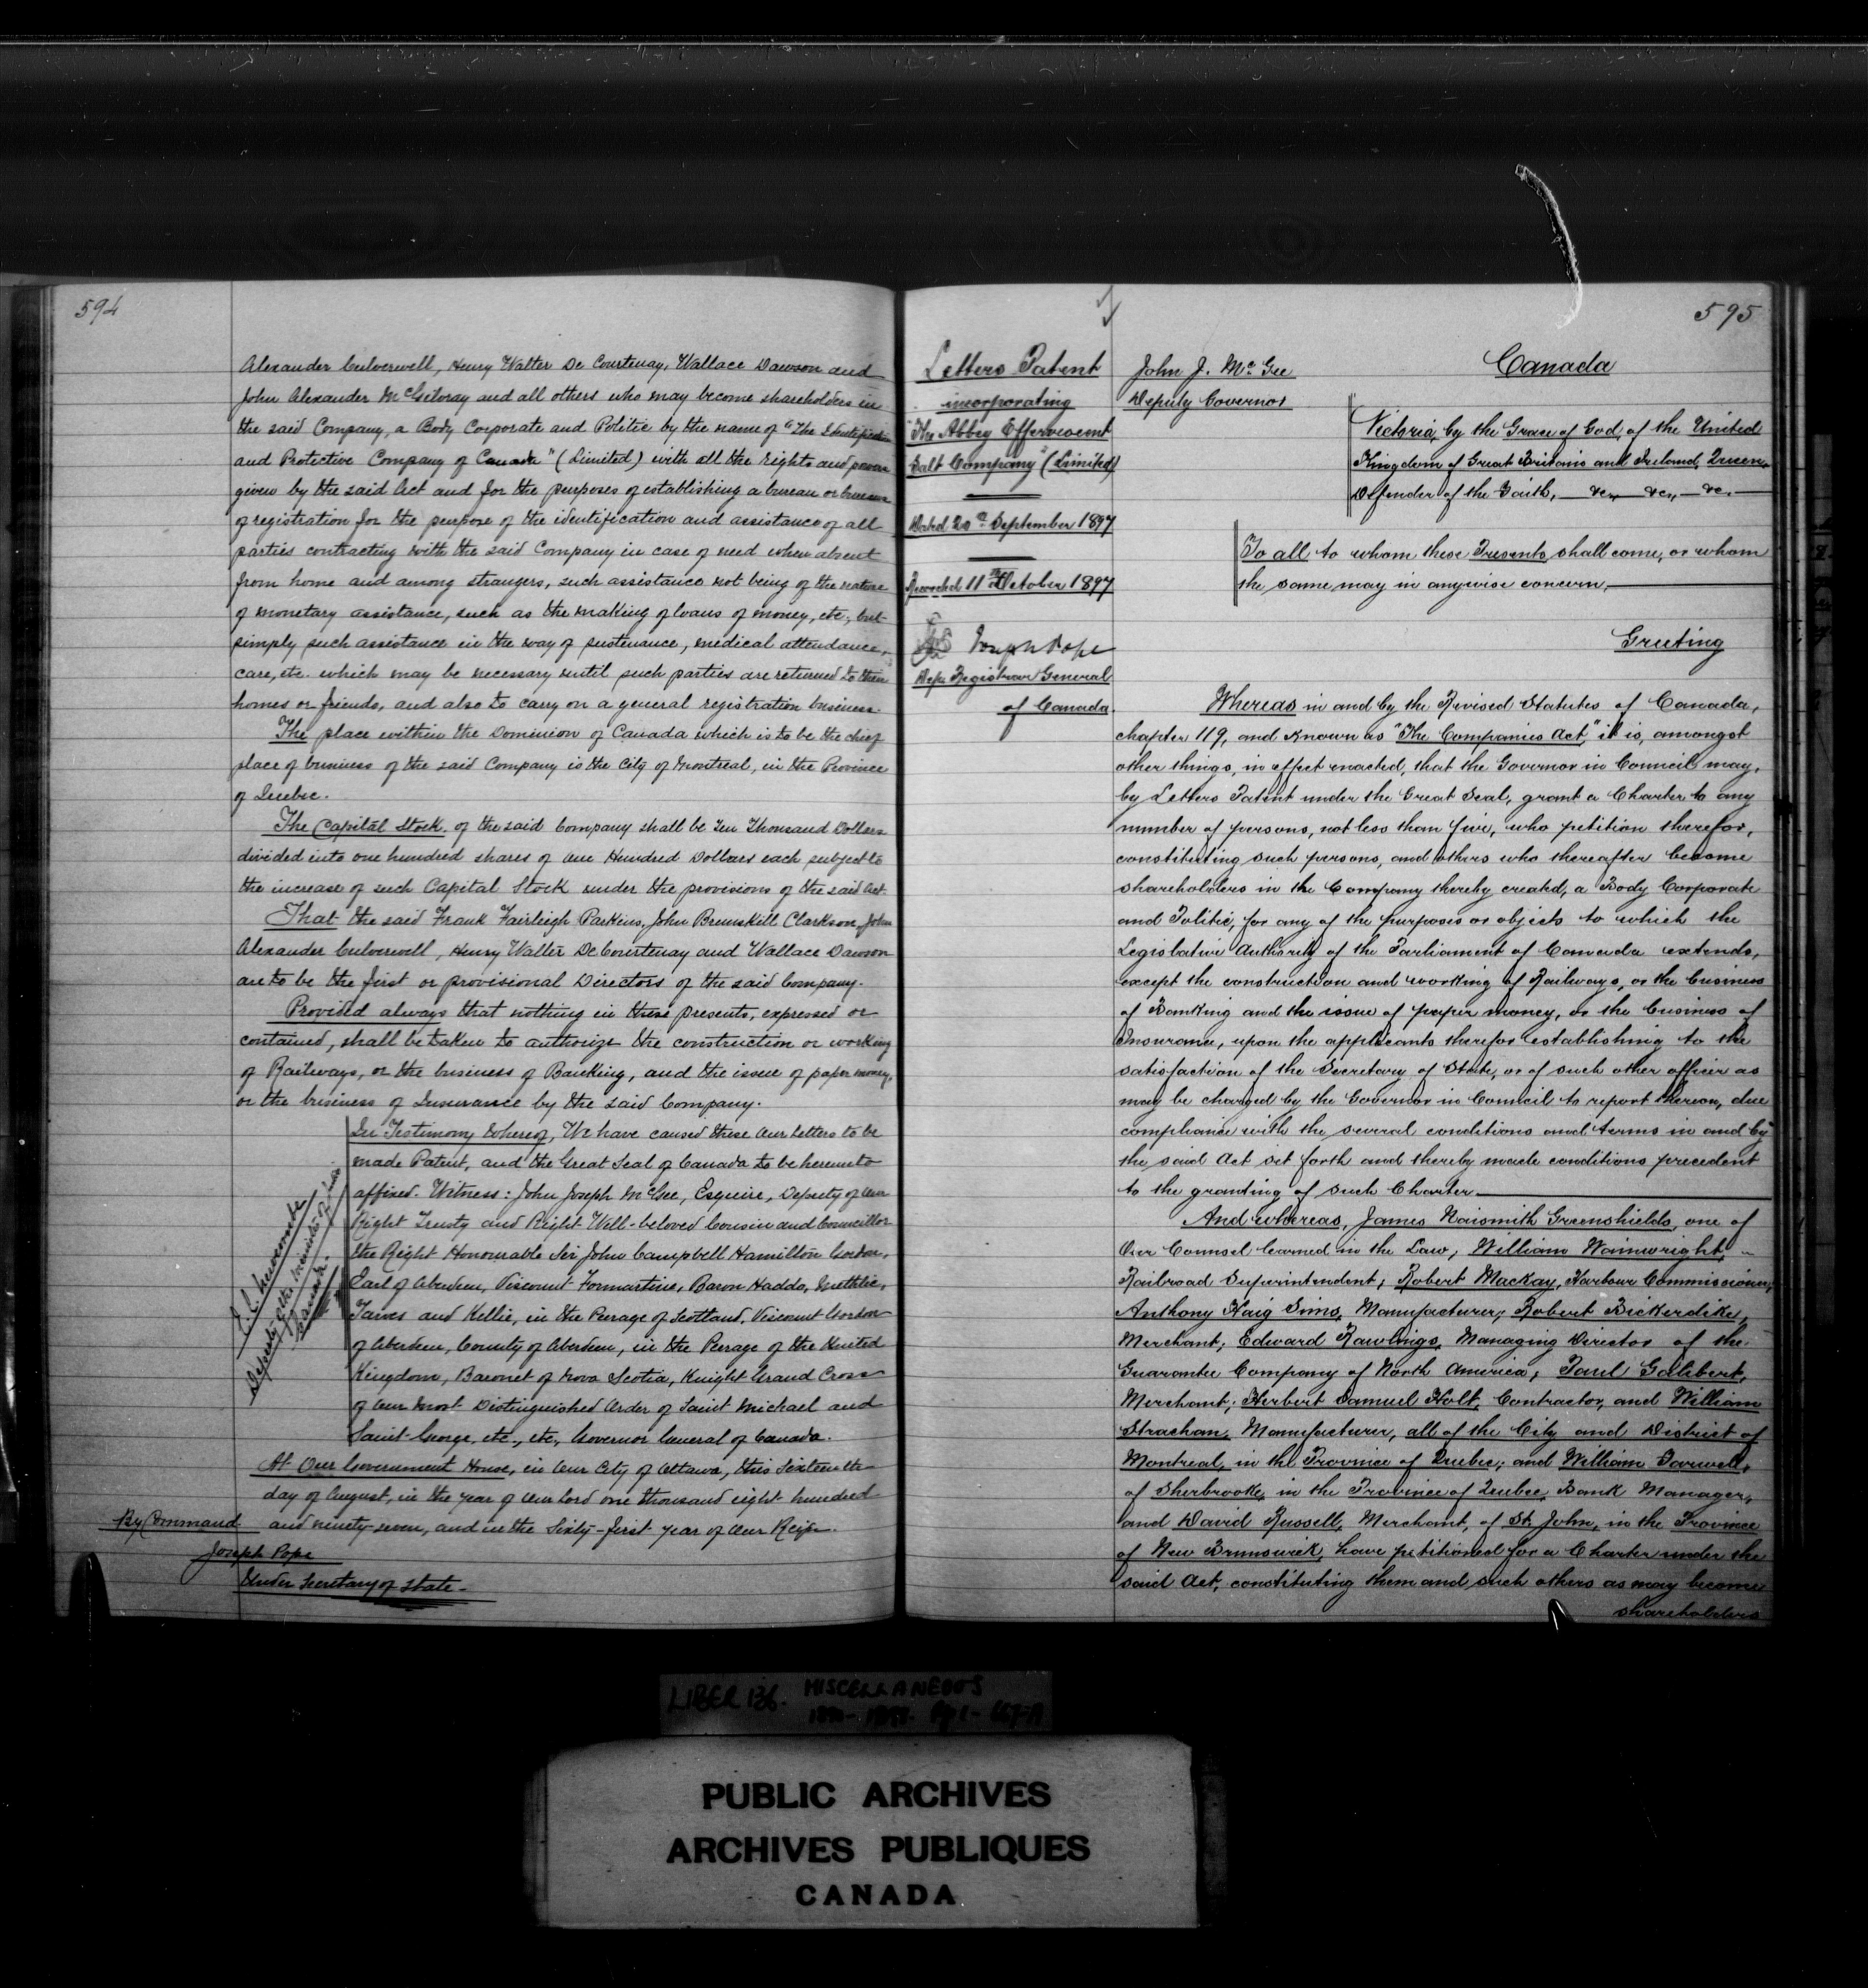 594
Alexander Culverwell, Henry Walter De Courtenay, Wallace Dawson and
John Alexander McGilvray and all others who may become shareholders in
the said Company, a Body Corporate and Politic by the name of "The Identification
and Protective Company of Canada" (Limited) with all the rights and powers
given by the said Act and for the purposes of establishing a bureau or bureaus
of registration for the purpose of the identification and assistance of all
parties contracting with the said Company in case of need when absent
from home and among strangers, such assistance not being of the nature
of monetary assistance, such as the making of loans of money, etc., but
simply such assistance in the way of sustenance, medical attendance,
care, etc. which may be necessary until such parties are returned to their
homes or friends, and also to carry on a general registration business.
The place within the Dominion of Canada which is to be the chief
place of business of the said Company is the City of Montreal, in the Province
of Quebec.
The Capital Stock of the said Company shall be Ten Thousand Dollars
divided into one hundred shares of One Hundred Dollars each subject to
the increase of such Capital Stock under the provisions of the said Act.
That the said Frank Fairleigh Parkins, John Brunskill Clarkson, John
Alexander Culverwell, Henry Walter De Courtenay and Wallace Dawson
are to be the first or provisional Directors of the said Company.
Provided always that nothing in these presents, expressed or
contained, shall be taken to authorize the construction or working
of Railways, or the business of Banking, and the issue of paper money,
or the business of Insurance by the said Company.
In Testimony Whereof, We have caused these Our Letters to be
made Patent, and the Great Seal of Canada to be hereunto
affixed. Witness: John Joseph McGee, Esquire, Deputy of Our
Right Trusty and Right Well-beloved Cousin and Councillor
the Right Honourable Sir John Campbell Hamilton Gordon,
Earl of Aberdeen, Viscount Formartine, Baron Haddo, Methlic,
Tarves and Kellie, in the Peerage of Scotland, Viscount Gordon
of Aberdeen, County of Aberdeen, in the Peerage of the United
Kingdom, Baronet of Nova Scotia, Knight Grand Cross
of Our Most Distinguished Order of Saint Michael and
Saint George, etc., etc., Governor General of Canada.
At Our Government House, in Our City of Ottawa, this Sixteenth
day of August, in the year of Our Lord one thousand eight hundred
and ninety-seven, and in the Sixty-first year of Our Reign.
E.L. Newcombe
Deputy of the Minister of Justice
Canada.
By Command
Joseph Pope
Under Secretary of State
595
Letters Patent
incorporating
"The Abbey Effervescent
Salt Company" (Limited)
Dated 20th September 1897
Recorded 11th October 1897
Joseph Pope
Dep. Registrar General
of Canada.
John J. McGee
Deputy Governor
Canada
Victoria, by the Grace of God, of the United
Kingdom of Great Britain and Ireland, Queen,
Defender of the Faith, &c, &c, &c.
To all to whom these Presents shall come, or whom
the same may in anywise concern,
Greeting
Whereas in and by the Revised Statutes of Canada,
chapter 119, and known as "The Companies Act," it is, amongst
other things, in effect enacted, that the Governor in Council may,
by Letters Patent under the Great Seal, grant a Charter to any
number of persons, not less than five, who petition therefor,
constituting such persons, and others who thereafter become
shareholders in the Company thereby created, a Body Corporate
and Politic, for any of the purposes or objects to which the
Legislative Authority of the Parliament of Canada extends,
except the construction and working of Railways, or the business
of Banking and the issue of paper money, or the business of
Insurance, upon the applicants therefor establishing to the
satisfaction of the Secretary of State, or of such other officer as
may be charged by the Governor in Council to report thereon, due
compliance with the several conditions and terms in and by
the said Act set forth and thereby made conditions precedent
to the granting of such Charter
And whereas, James Naismith Greenshields, one of
Our Counsel learned in the Law; William Wainwright,
Railroad Superintendent; Robert Mackay, Harbour Commissioner;
Anthony Haig Sims, Manufacturer; Robert Bickerdike,
Merchant; Edward Rawlings, Managing Director of the
Guarantee Company of North America; Paul Galibert,
Merchant; Herbert Samuel Holt, Contractor, and William
Strachan, Manufacturer, all of the City and District of
Montreal, in the Province of Quebec; and William Farwell,
of Sherbrooke, in the Province of Quebec, Bank Manager,
and David Russell, Merchant, of St John, in the Province
of New Brunswick, have petitioned for a Charter under the
said Act, constituting them and such others as may become
shareholders
LIBER 136. MISCELLANEOUS
PUBLIC ARCHIVES
ARCHIVES PUBLIQUES
CANADA